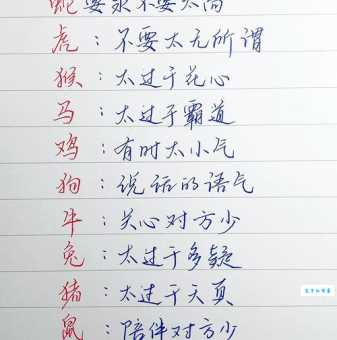 蛇 要求不要太高
虎：不要太无所谓
猴：太过于花心
马：太过于霸道
鸡：有时太小气
狗：说话的语气
牛：关心对方少
兔：太过于多疑
猪：太过于天真
鼠：陪伴对方少